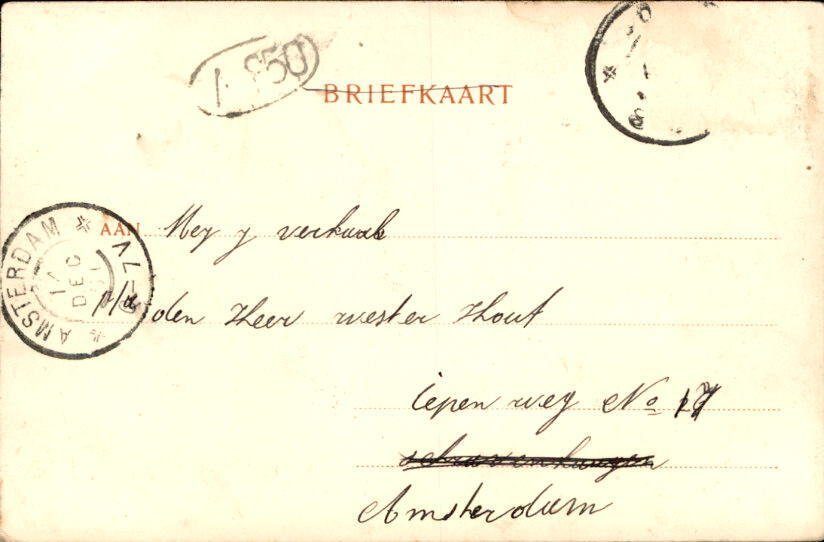 1. 850
BRIEFKAART
AAN Mej J verkaak
p/a den Heer wester Hout
iepen weg No 17
schravenhaagen
Amsterdam
AMSTERDAM
DEC
7V